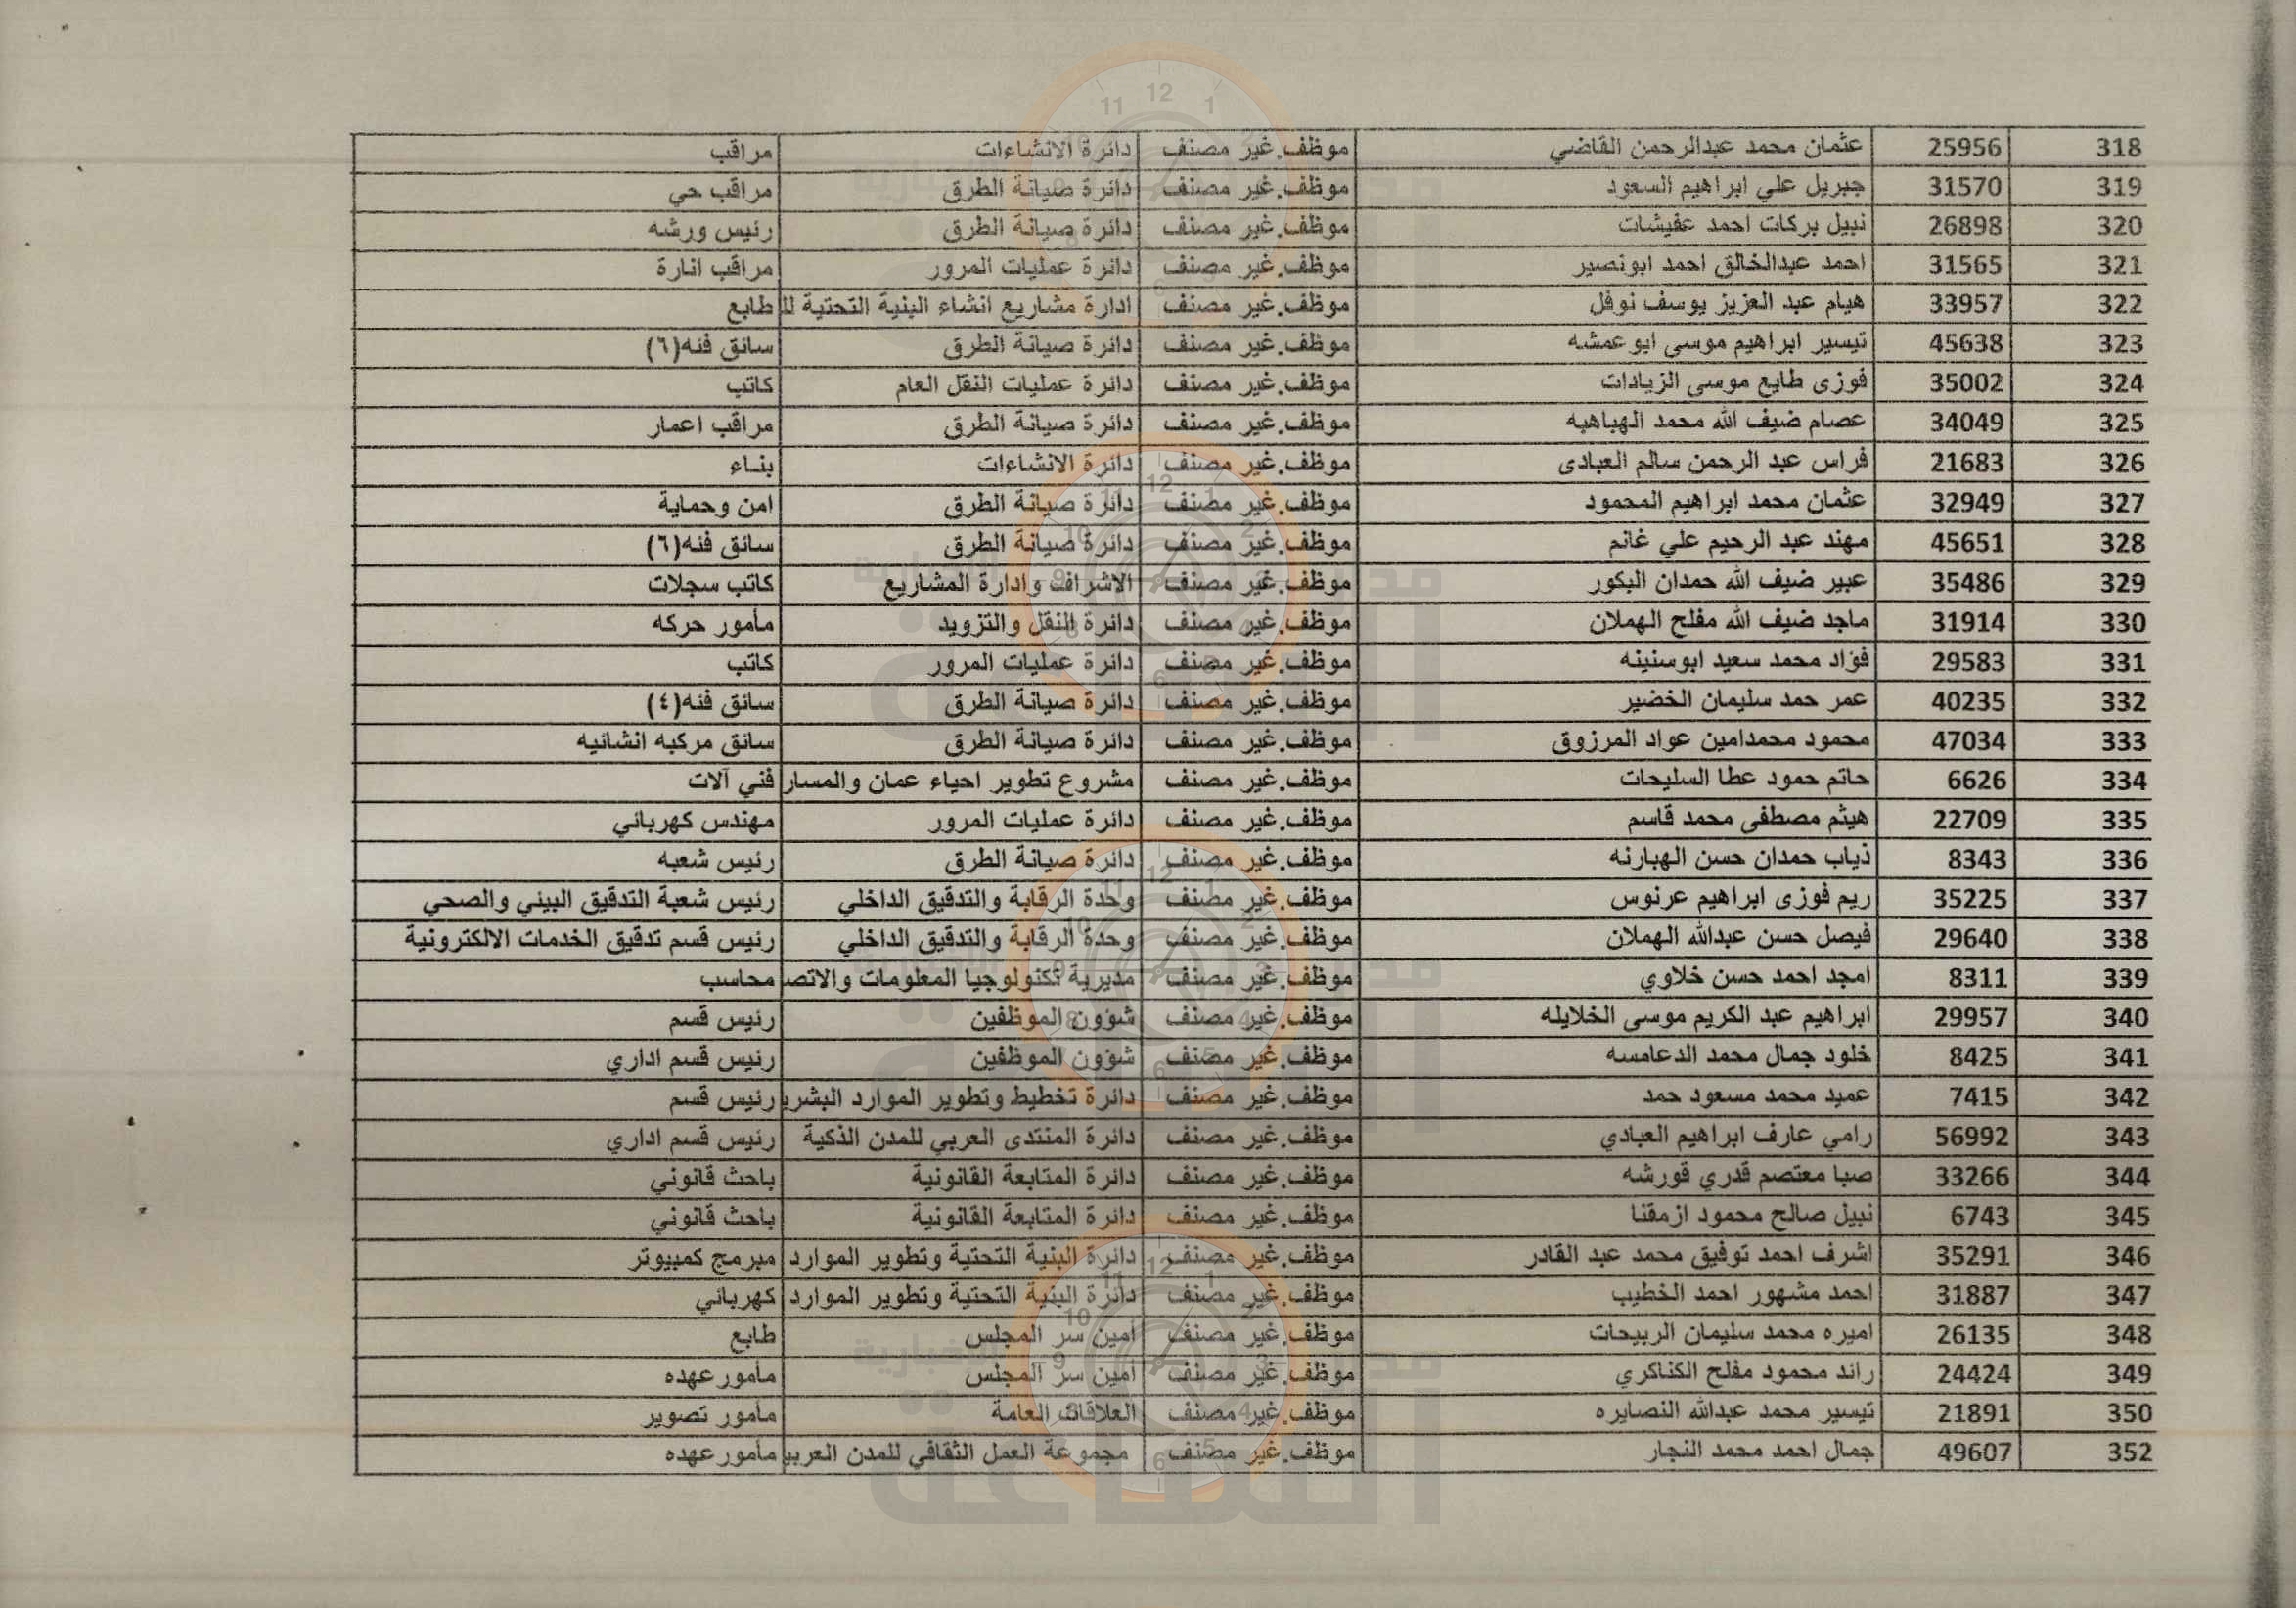 318 25956 عثمان محمد عبدالرحمن القاضي موظف.غير مصنف دائرة الانشاءات مراقب
319 31570 جبريل علي ابراهيم السعود موظف.غير مصنف دائرة صيانة الطرق مراقب حي
320 26898 نبيل بركات احمد عفيشات موظف.غير مصنف دائرة صيانة الطرق رئيس ورشه
321 31565 احمد عبدالخالق احمد ابونصير موظف.غير مصنف دائرة عمليات المرور مراقب انارة
322 33957 هيام عبد العزيز يوسف نوفل موظف.غير مصنف ادارة مشاريع انشاء البنية التحتية لل طابع
323 45638 تيسير ابراهيم موسى ابوعمشه موظف.غير مصنف دائرة صيانة الطرق سائق فئه(٦)
324 35002 فوزى طايع موسى الزيادات موظف.غير مصنف دائرة عمليات النقل العام كاتب
325 34049 عصام ضيف الله محمد الهباهبه موظف.غير مصنف دائرة صيانة الطرق مراقب اعمار
326 21683 فراس عبد الرحمن سالم العبادى موظف.غير مصنف دائرة الانشاءات بناء
327 32949 عثمان محمد ابراهيم المحمود موظف.غير مصنف دائرة صيانة الطرق امن وحماية
328 45651 مهند عبد الرحيم علي غانم موظف.غير مصنف دائرة صيانة الطرق سائق فئه(٦)
329 35486 عبير ضيف الله حمدان البكور موظف.غير مصنف الاشراف وادارة المشاريع كاتب سجلات
330 31914 ماجد ضيف الله مفلح الهملان موظف.غير مصنف دائرة النقل والتزويد مأمور حركه
331 29583 فؤاد محمد سعيد ابوسنينه موظف.غير مصنف دائرة عمليات المرور كاتب
332 40235 عمر حمد سليمان الخضير موظف.غير مصنف دائرة صيانة الطرق سائق فئه(٤)
333 47034 محمود محمدامين عواد المرزوق موظف.غير مصنف دائرة صيانة الطرق سائق مركبه انشائيه
334 6626 حاتم حمود عطا السليحات موظف.غير مصنف مشروع تطوير احياء عمان والمسار فني آلات
335 22709 هيثم مصطفى محمد قاسم موظف.غير مصنف دائرة عمليات المرور مهندس كهربائي
336 8343 ذياب حمدان حسن الهبارنه موظف.غير مصنف دائرة صيانة الطرق رئيس شعبه
337 35225 ريم فوزى ابراهيم عرنوس موظف.غير مصنف وحدة الرقابة والتدقيق الداخلي رئيس شعبة التدقيق البيئي والصحي
338 29640 فيصل حسن عبدالله الهملان موظف.غير مصنف وحدة الرقابة والتدقيق الداخلي رئيس قسم تدقيق الخدمات الالكترونية
339 8311 امجد احمد حسن خلاوي موظف.غير مصنف مديرية تكنولوجيا المعلومات والاتص محاسب
340 29957 ابراهيم عبد الكريم موسى الخلايله موظف.غير مصنف شؤون الموظفين رئيس قسم
341 8425 خلود جمال محمد الدعامسه موظف.غير مصنف شؤون الموظفين رئيس قسم اداري
342 7415 عميد محمد مسعود حمد موظف.غير مصنف دائرة تخطيط وتطوير الموارد البشري رئيس قسم
343 56992 رامي عارف ابراهيم العبادي موظف.غير مصنف دائرة المنتدى العربي للمدن الذكية رئيس قسم اداري
344 33266 صبا معتصم قدري قورشه موظف.غير مصنف دائرة المتابعة القانونية باحث قانوني
345 6743 نبيل صالح محمود ازمقنا موظف.غير مصنف دائرة المتابعة القانونية باحث قانوني
346 35291 اشرف احمد توفيق محمد عبد القادر موظف.غير مصنف دائرة البنية التحتية وتطوير الموارد مبرمج كمبيوتر
347 31887 احمد مشهور احمد الخطيب موظف.غير مصنف دائرة البنية التحتية وتطوير الموارد كهربائي
348 26135 اميره محمد سليمان الربيحات موظف.غير مصنف أمين سر المجلس طابع
349 24424 رائد محمود مفلح الكناكري موظف.غير مصنف أمين سر المجلس مأمور عهده
350 21891 تيسير محمد عبدالله النصايره موظف.غير مصنف العلاقات العامة مأمور تصوير
352 49607 جمال احمد محمد النجار موظف.غير مصنف مجموعة العمل الثقافي للمدن العربي مأمور عهده